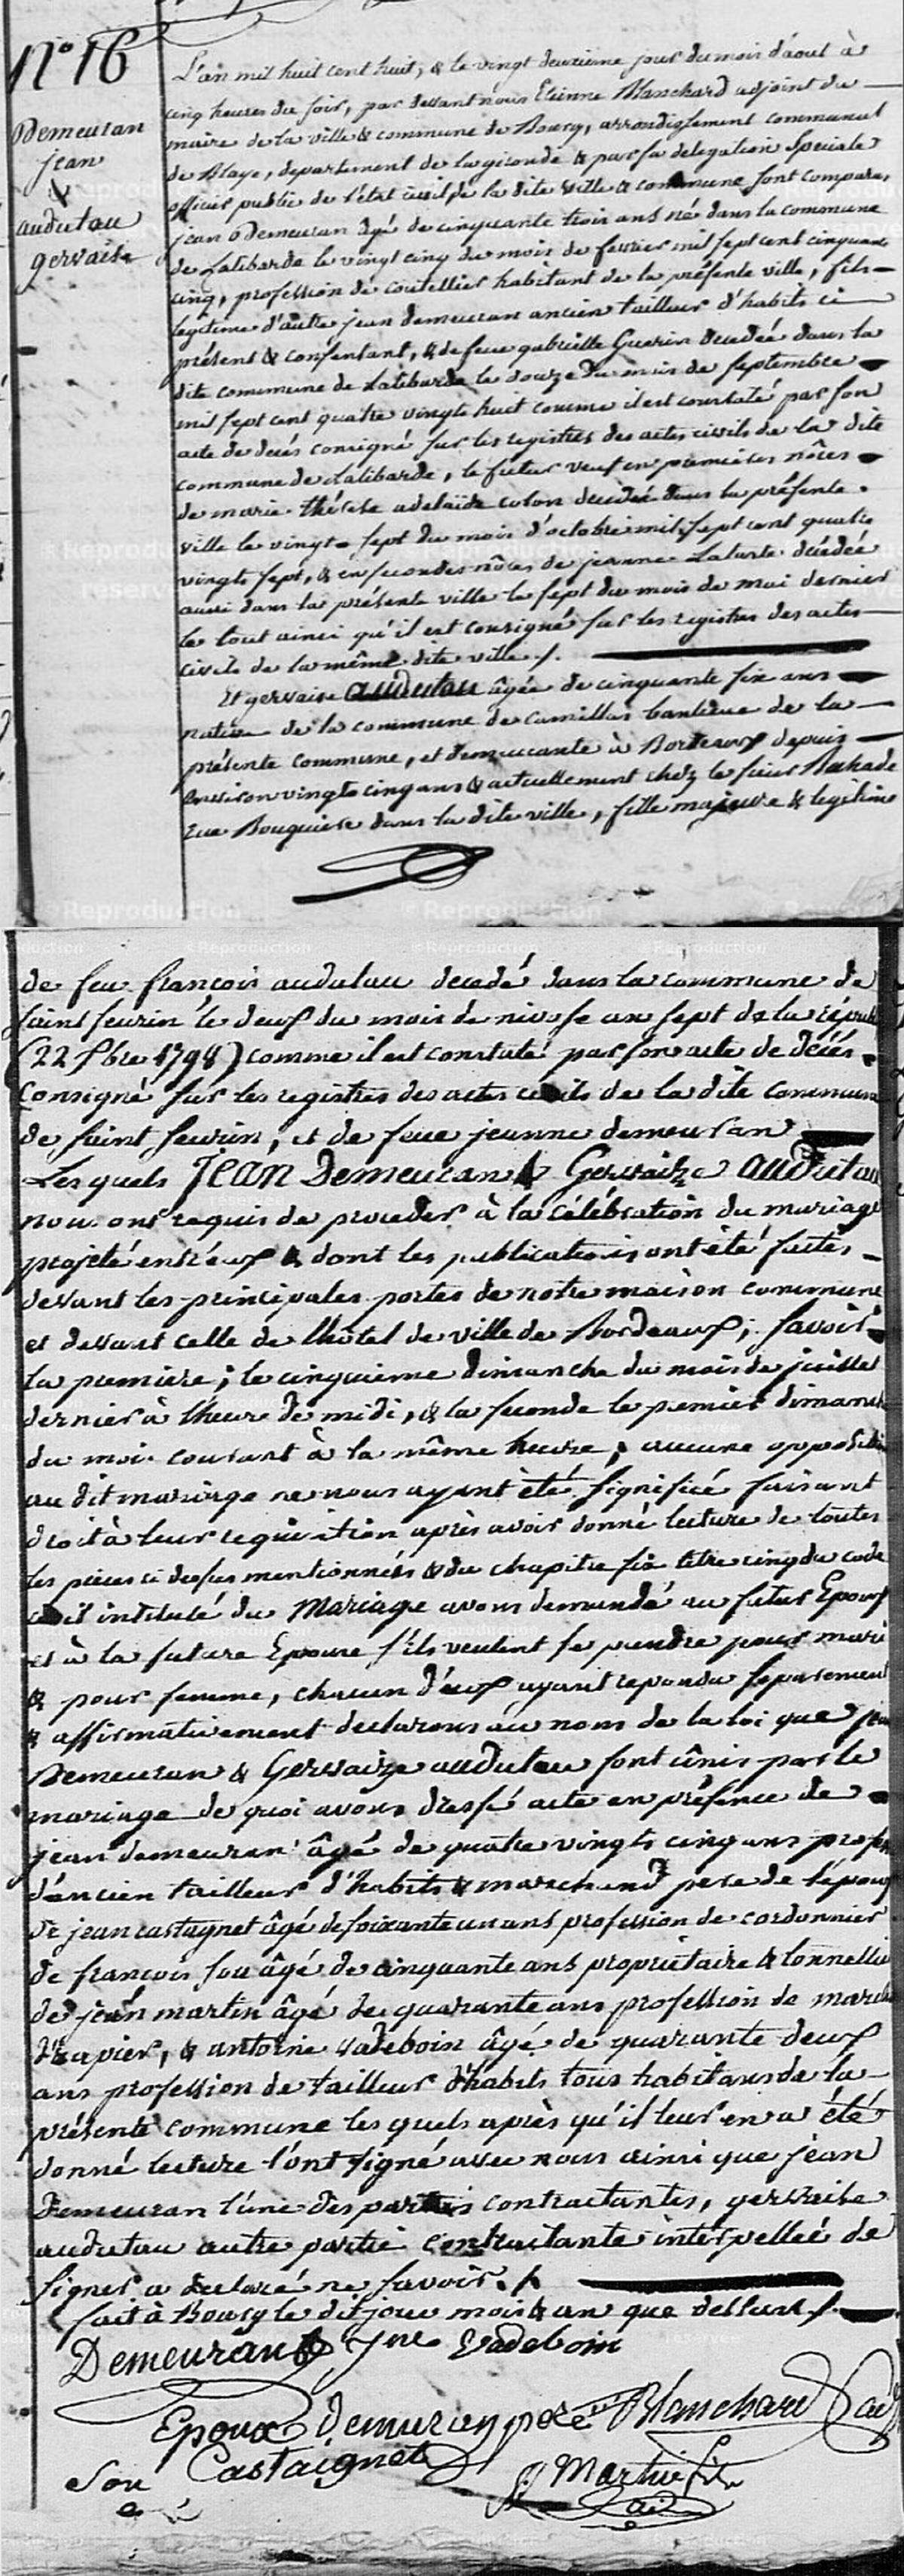 N.° 16
Demeuran
jean
&
audutau
gervaise
L'an mil huit cent huit, & le vingt deuxieme jour du mois d'aout à
cinq heures du soir, par devant nous Etienne Blanchard adjoint du
maire de la ville & commune de Bourg, arrondissement communal
de Blaye, departement de la gironde & par sa delegation speciale
officier public de l'état civil de la dite ville & commune sont comparus
jean Demeuran âgé de cinquante trois ans né dans la commune
de Lalibarde le vingt cinq du mois de fevrier mil sept cent cinquante
cinq, profession de coutellier habitant de la présente ville, fils
legitime d'autre jean demeuran ancien tailleur d'habits ci
présent & consentant, & de feue gabrielle Guerin decedée dans la
dite commune de Lalibarde le douze du mois de septembre
mil sept cent quatre vingts huit comme il est constaté par son
acte de decés consigné sur les registres des actes civils de la dite
commune de Lalibarde, le futur veuf en premieres nôces
de marie thérèse adelaïde colon decedée dans la présente
ville le vingt sept du mois d'octobre mil sept cent quatre
vingts sept, & en secondes nôces de jeanne Latarte décédée
aussi dans la présente ville le sept du mois de mai dernier
le tout ainsi qu'il est consigné sur les registres des actes
civils de la même dite ville ./.
Et gervaise audutau âgée de cinquante six ans
native de la commune de Camillas banlieue de la
présente commune, et demeurante à Bordeaux depuis
environ vingts cinq ans & actuellement chez le sieur
rue Bouquiere dans la dite ville, fille majeure & legitime
de feu françois audutau decedé dans la commune de
saint seurin le deux du mois de nivose an sept de la répub
(22 Xbre 1798) comme il est constaté par son acte de décés
consigné sur les registres des actes civils de la dite commune
de saint seurin, et de feue jeanne demeuran
Les quels Jean Demeuran & Gervaize audutau
nous ont requis de proceder à la célébration du mariage
projeté entr'eux & dont les publications ont été faites
devant les principales portes de notre maison commune
et devant celle de lhôtel de ville de Bordeaux; savoir
la premiere; le cinquieme dimanche du mois de juillet
dernier à lheure de midi, & la seconde le premier dimanche
du mois courant à la même heure; aucune opposition
au dit mariage ne nous ayant été signifiée faisant
droit à leur requisition après avoir donné lecture de toutes
les pieces ci dessus mentionnées & du chapitre six titre cinq du code
civil intitulé du Mariage avons demandé au futur Epoux
et à la future Epouse s'ils veulent se prendre pour mari
& pour femme, chacun d'eux ayant repondu separement
& affirmativement declarons au nom de la loi que jean
Demeuran & Gervaize audutau sont ûnis par le
mariage de quoi avons dressé acte en présence de
jean demeuran âgé de quatre vingts cinq ans profess
d'ancien tailleur d'habits & marchand pere de l'époux
de jean castagnet âgé de soixante un ans profession de cordonnier
de françois sou âgé de cinquante ans propriétaire & tonnellier
de jean martin âgé de quarante ans profession de march
drapier, & antoine vadeboin âgé de quarante deux
ans profession de tailleur d'habits tous habitans de la
présente commune les quels après qu'il leur en a été
donné lecture l'ont signé avec nous ainsi que jean
Demeuran l'une des parties contractantes, gervaise
audutau autre partie contractante interpellée de
signer a declaré ne savoir ./.
fait à Bourg le dit jour mois & an que dessus ./.
Demeurant jne Vadeboin
Epoux Demuran pere Blanchard
Castaignet
Sou Martin fils